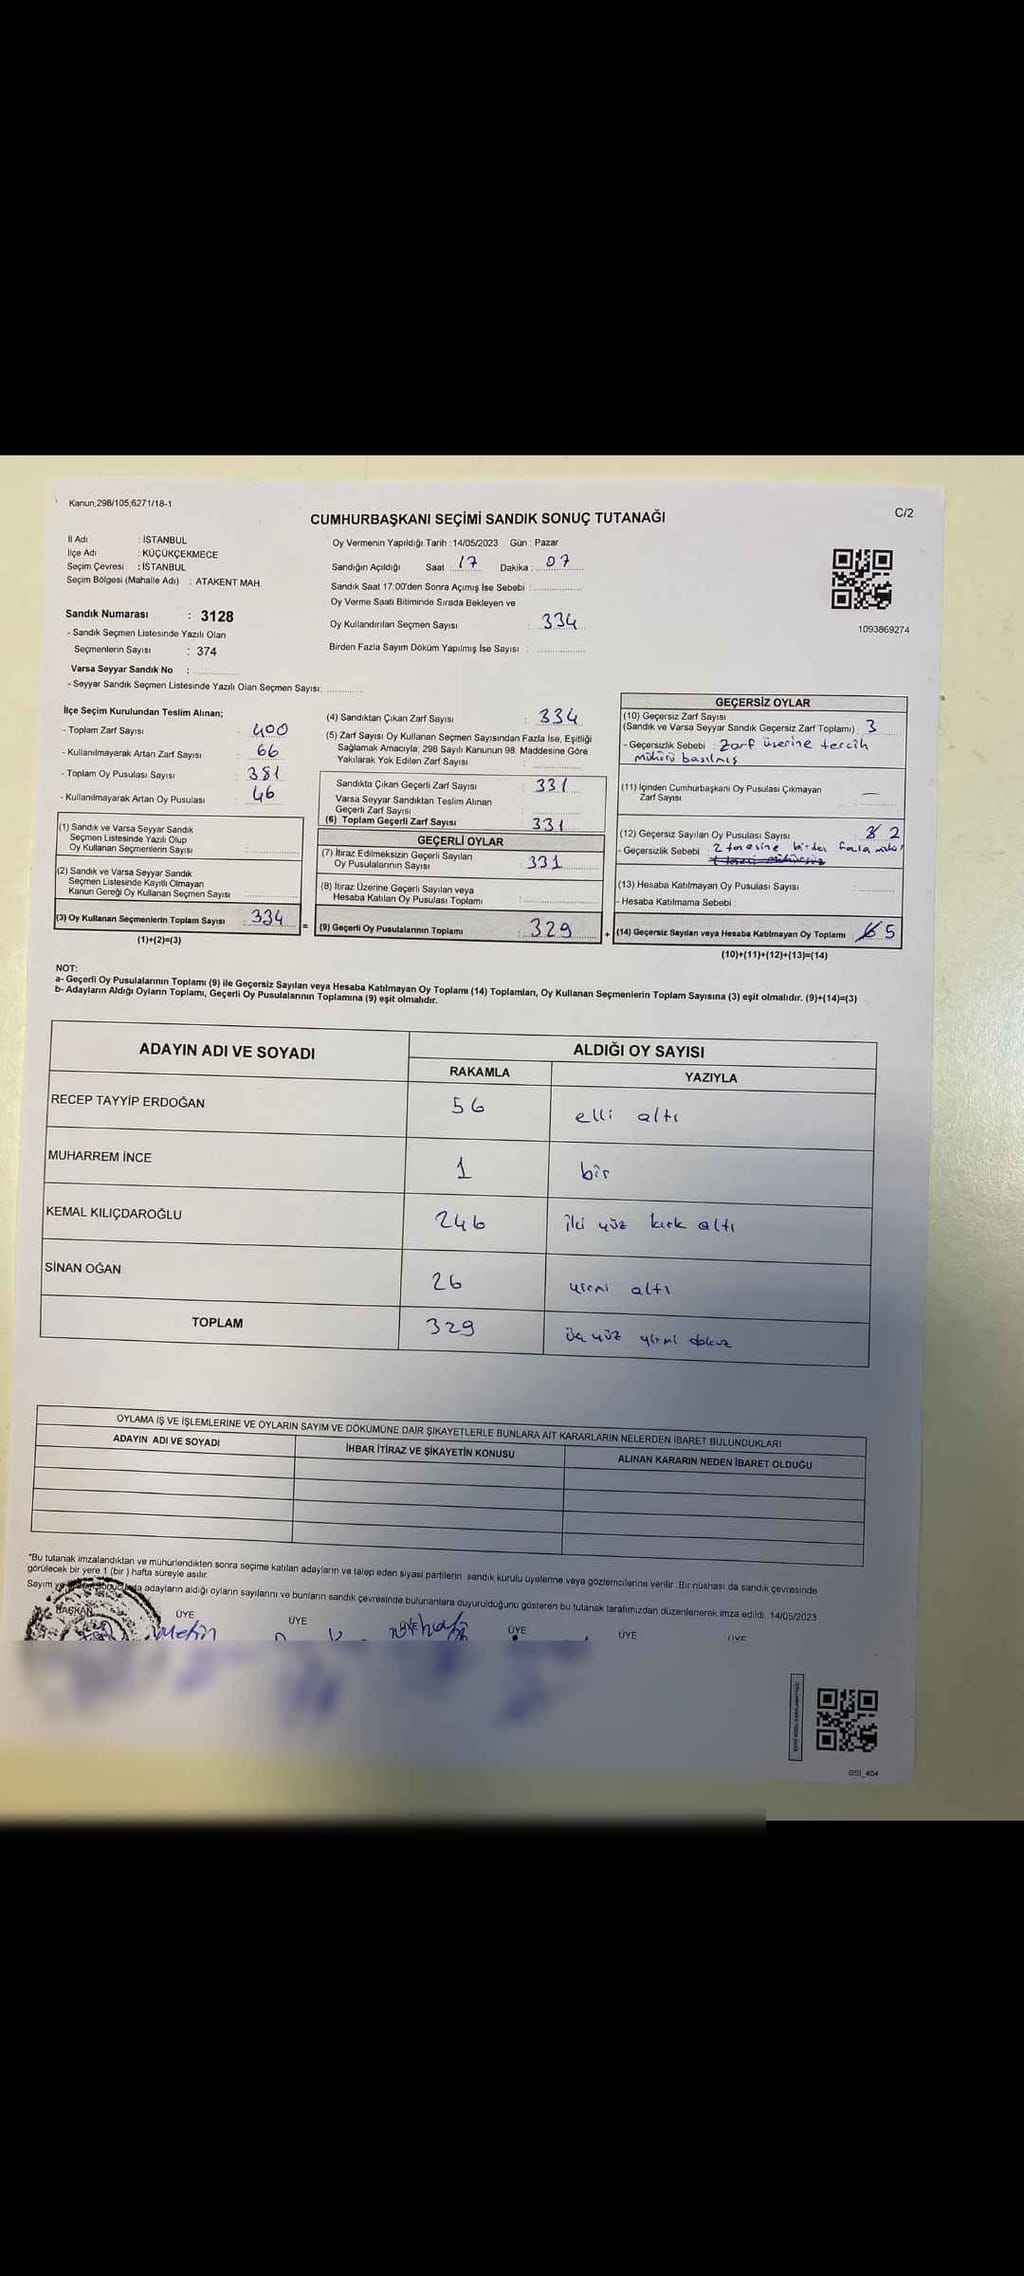 Kanun,298/105,6271/18-1
C/2
CUMHURBAŞKANI SEÇİMİ SANDIK SONUÇ TUTANAĞI
İl Adı : İSTANBUL
İlçe Adı : KÜÇÜKÇEKMECE
Seçim Çevresi : İSTANBUL
Seçim Bölgesi (Mahalle Adı) : ATAKENT MAH.
Sandık Numarası : 3128
- Sandık Seçmen Listesinde Yazılı Olan
Seçmenlerin Sayısı : 374
Varsa Seyyar Sandık No :
- Seyyar Sandık Seçmen Listesinde Yazılı Olan Seçmen Sayısı:
Oy Vermenin Yapıldığı Tarih : 14/05/2023 Gün : Pazar
Sandığın Açıldığı Saat : 17 Dakika : 07
Sandık Saat 17:00'den Sonra Açımış İse Sebebi :
Oy Verme Saati Bitiminde Sırada Bekleyen ve
Oy Kullandırılan Seçmen Sayısı : 334
Birden Fazla Sayım Döküm Yapılmış İse Sayısı :
1093869274
İlçe Seçim Kurulundan Teslim Alınan;
- Toplam Zarf Sayısı : 400
- Kullanılmayarak Artan Zarf Sayısı : 66
- Toplam Oy Pusulası Sayısı : 381
- Kullanılmayarak Artan Oy Pusulası : 46
(1) Sandık ve Varsa Seyyar Sandık
Seçmen Listesinde Yazılı Olup
Oy Kullanan Seçmenlerin Sayısı
(2) Sandık ve Varsa Seyyar Sandık
Seçmen Listesinde Kayıtlı Olmayan
Kanun Gereği Oy Kullanan Seçmen Sayısı
(3) Oy Kullanan Seçmenlerin Toplam Sayısı : 334
(1)+(2)=(3)
(4) Sandıktan Çıkan Zarf Sayısı : 334
(5) Zarf Sayısı Oy Kullanan Seçmen Sayısından Fazla İse, Eşitliği
Sağlamak Amacıyla, 298 Sayılı Kanunun 98. Maddesine Göre
Yakılarak Yok Edilen Zarf Sayısı :
Sandıkta Çıkan Geçerli Zarf Sayısı : 331
Varsa Seyyar Sandıktan Teslim Alınan
Geçerli Zarf Sayısı :
(6) Toplam Geçerli Zarf Sayısı 331
GEÇERLİ OYLAR
(7) İtiraz Edilmeksizin Geçerli Sayılan
Oy Pusulalarının Sayısı : 331
(8) İtiraz Üzerine Geçerli Sayılan veya
Hesaba Katılan Oy Pusulası Toplamı :
= (9) Geçerli Oy Pusulalarının Toplamı : 329
GEÇERSİZ OYLAR
(10) Geçersiz Zarf Sayısı
(Sandık ve Varsa Seyyar Sandık Geçersiz Zarf Toplamı) : 3
- Geçersizlik Sebebi : Zarf üzerine tercih
mührü basılmış
(11) İçinden Cumhurbaşkanı Oy Pusulası Çıkmayan
Zarf Sayısı : —
(12) Geçersiz Sayılan Oy Pusulası Sayısı : 2
- Geçersizlik Sebebi : 2 tanesine birden fazla
(13) Hesaba Katılmayan Oy Pusulası Sayısı :
- Hesaba Katılmama Sebebi :
+ (14) Geçersiz Sayılan veya Hesaba Katılmayan Oy Toplamı : 5
(10)+(11)+(12)+(13)=(14)
NOT:
a- Geçerli Oy Pusulalarının Toplamı (9) ile Geçersiz Sayılan veya Hesaba Katılmayan Oy Toplamı (14) Toplamları, Oy Kullanan Seçmenlerin Toplam Sayısına (3) eşit olmalıdır. (9)+(14)=(3)
b- Adayların Aldığı Oyların Toplamı, Geçerli Oy Pusulalarının Toplamına (9) eşit olmalıdır.
ADAYIN ADI VE SOYADI
ALDIĞI OY SAYISI
RAKAMLA YAZIYLA
RECEP TAYYİP ERDOĞAN 56 elli altı
MUHARREM İNCE 1 bir
KEMAL KILIÇDAROĞLU 246 iki yüz kırk altı
SİNAN OĞAN 26 yirmi altı
TOPLAM 329 üç yüz yirmi dokuz
OYLAMA İŞ VE İŞLEMLERİNE VE OYLARIN SAYIM VE DÖKÜMÜNE DAİR ŞİKAYETLERLE BUNLARA AİT KARARLARIN NELERDEN İBARET BULUNDUKLARI
ADAYIN ADI VE SOYADI İHBAR İTİRAZ VE ŞİKAYETİN KONUSU ALINAN KARARIN NEDEN İBARET OLDUĞU
*Bu tutanak imzalandıktan ve mühürlendikten sonra seçime katılan adayların ve talep eden siyasi partilerin sandık kurulu üyelerine veya gözlemcilerine verilir. Bir nüshası da sandık çevresinde
görülecek bir yere 1 (bir) hafta süreyle asılır.
Sayım adayların aldığı oyların sayılarını ve bunların sandık çevresinde bulunanlara duyurulduğunu gösteren bu tutanak tarafımızdan düzenlenerek imza edildi. 14/05/2023
BAŞKAN ÜYE ÜYE ÜYE ÜYE ÜYE
Metin
SSI_404